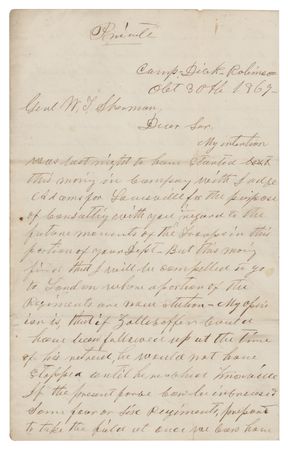 Private
Camp Dick Robinson
Oct 30th 186
Genl W. T. Sherman,
Dear Sir,
My intention
was last night to have started
this morning in Company with Judge
Adams for Louisville for the purpose
of Consulting with you regard to the
future moments by the Troops in this
portion of your Dept. But this mong
find that I will be compelled to go
to London where a portion of the
Regiments are now station - My opin
ion is, that if Zollicoffer Could
have been followed up at the time
of his retreat, he would not have
stopped until he reached Knoxville
If the present force Can be increased
some four or six Regiments, prepare
to take the field at once we Can have